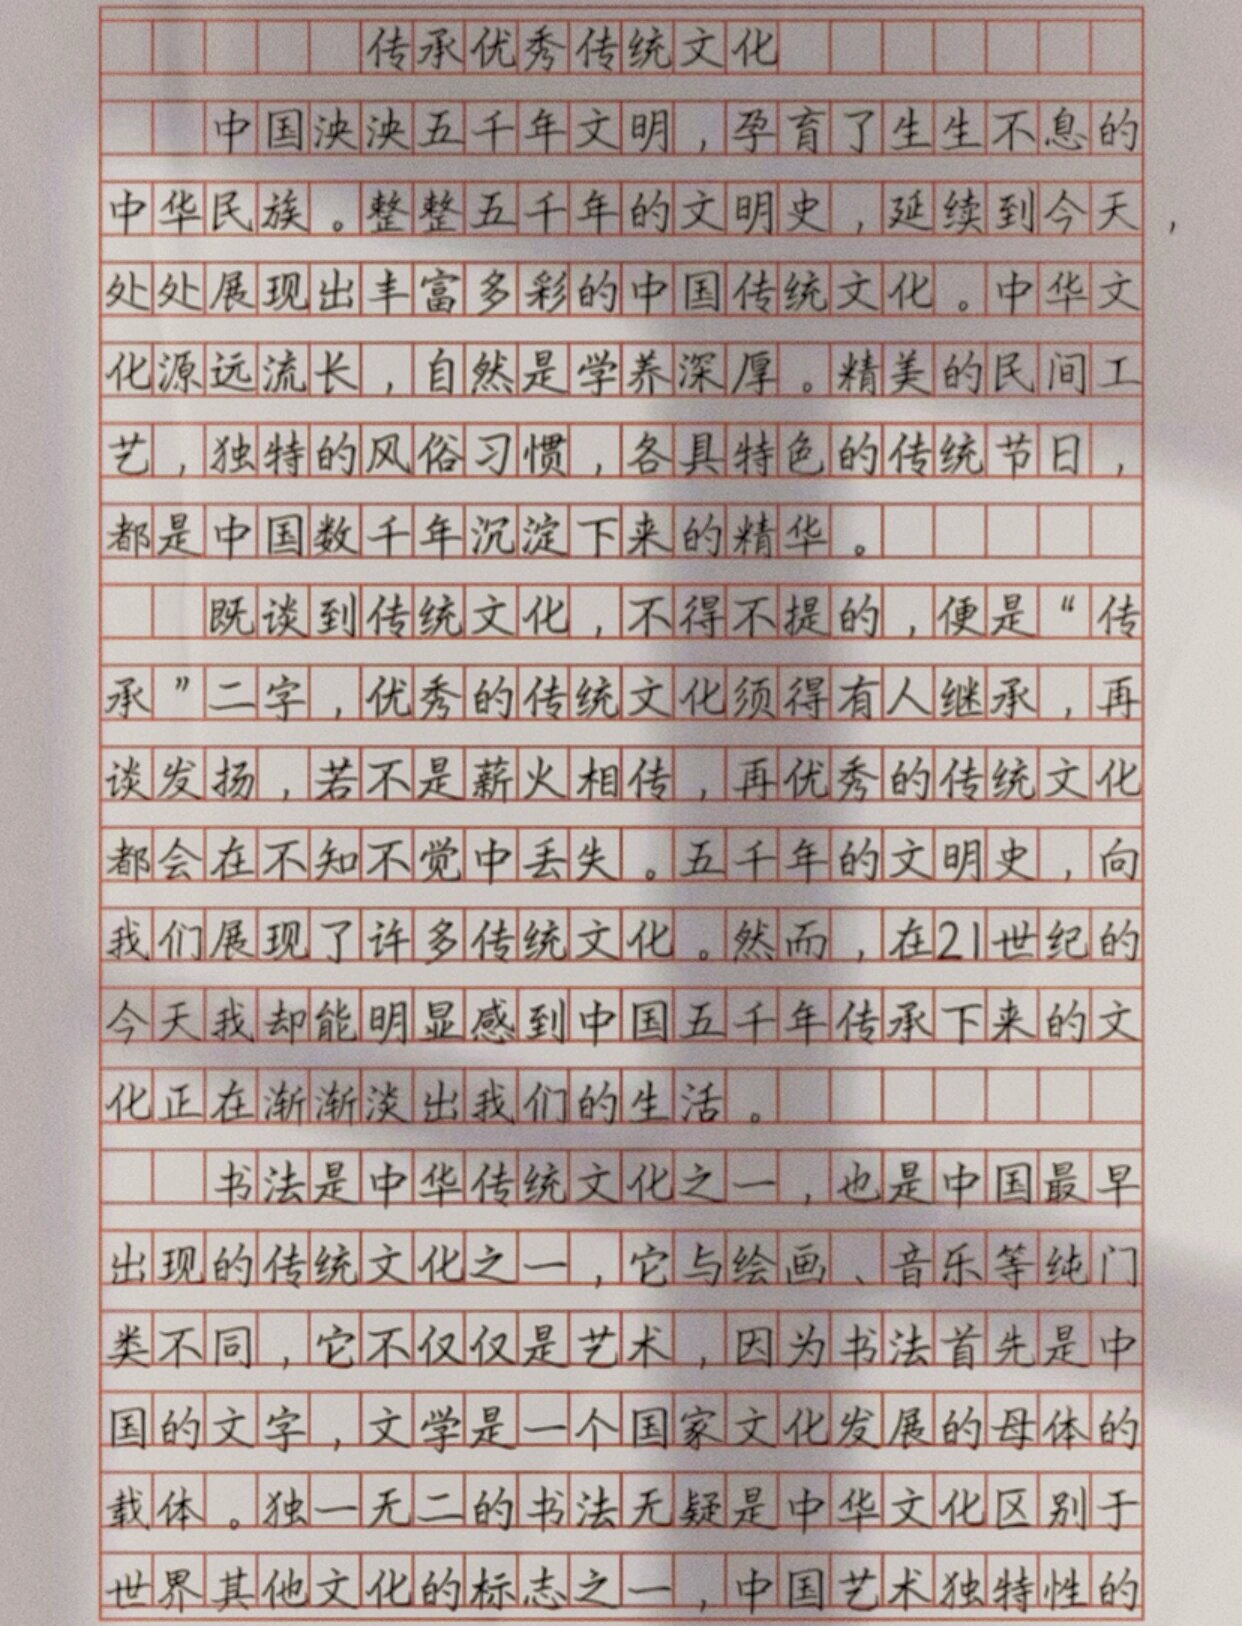 传承优秀传统文化
中国泱泱五千年文明，孕育了生生不息的
中华民族。整整五千年的文明史，延续到今天，
处处展现出丰富多彩的中国传统文化。中华文
化源远流长，自然是学养深厚。精美的民间工
艺，独特的风俗习惯，各具特色的传统节日，
都是中国数千年沉淀下来的精华。
既谈到传统文化，不得不提的，便是“传
承”二字，优秀的传统文化须得有人继承，再
谈发扬，若不是薪火相传，再优秀的传统文化
都会在不知不觉中丢失。五千年的文明史，向
我们展现了许多传统文化。然而，在21世纪的
今天我却能明显感到中国五千年传承下来的文
化正在渐渐淡出我们的生活。
书法是中华传统文化之一，也是中国最早
出现的传统文化之一，它与绘画、音乐等纯门
类不同，它不仅仅是艺术，因为书法首先是中
国的文字，文学是一个国家文化发展的母体的
载体。独一无二的书法无疑是中华文化区别于
世界其他文化的标志之一，中国艺术独特性的